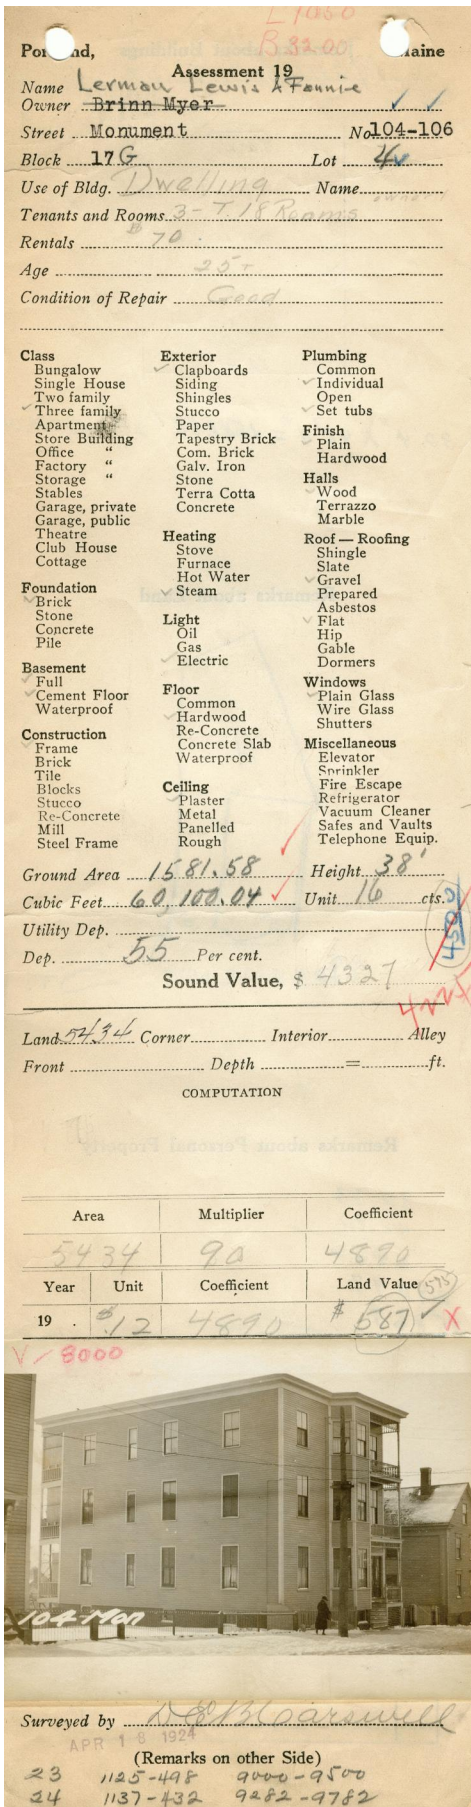 L 1050
B 3200
Portland, Maine
Assessment 19
Name Lerman Lewis & Fannie
Owner Brinn Myer
Street Monument No 104-106
Block 17G Lot 4
Use of Bldg. Dwelling Name owner
Tenants and Rooms 3-T. 18 Rooms
Rentals $70.
Age 25+
Condition of Repair Good
Class
Bungalow
Single House
Two family
Three family
Apartment
Store Building
Office "
Factory "
Storage "
Stables
Garage, private
Garage, public
Theatre
Club House
Cottage
Foundation
Brick
Stone
Concrete
Pile
Basement
Full
Cement Floor
Waterproof
Construction
Frame
Brick
Tile
Blocks
Stucco
Re-Concrete
Mill
Steel Frame
Exterior
Clapboards
Siding
Shingles
Stucco
Paper
Tapestry Brick
Com. Brick
Galv. Iron
Stone
Terra Cotta
Concrete
Heating
Stove
Furnace
Hot Water
Steam
Light
Oil
Gas
Electric
Floor
Common
Hardwood
Re-Concrete
Concrete Slab
Waterproof
Ceiling
Plaster
Metal
Panelled
Rough
Plumbing
Common
Individual
Open
Set tubs
Finish
Plain
Hardwood
Halls
Wood
Terrazzo
Marble
Roof — Roofing
Shingle
Slate
Gravel
Prepared
Asbestos
Flat
Hip
Gable
Dormers
Windows
Plain Glass
Wire Glass
Shutters
Miscellaneous
Elevator
Sprinkler
Fire Escape
Refrigerator
Vacuum Cleaner
Safes and Vaults
Telephone Equip.
Ground Area 1581.58 Height 38'
Cubic Feet 60,100.04 Unit 16 cts.
Utility Dep.
Dep. 55 Per cent.
Sound Value, $ 4327
4225
Land 5434 Corner Interior Alley
Front Depth = ft.
COMPUTATION
Area Multiplier Coefficient
5434 90 4890
Year Unit Coefficient Land Value 595
19 . $.12 4890 $ 587 X
V/8000
104-Mon
Surveyed by D E B Carswell
APR 18 1924
(Remarks on other Side)
23 1125-498 9000-9500
24 1137-432 9282-9782